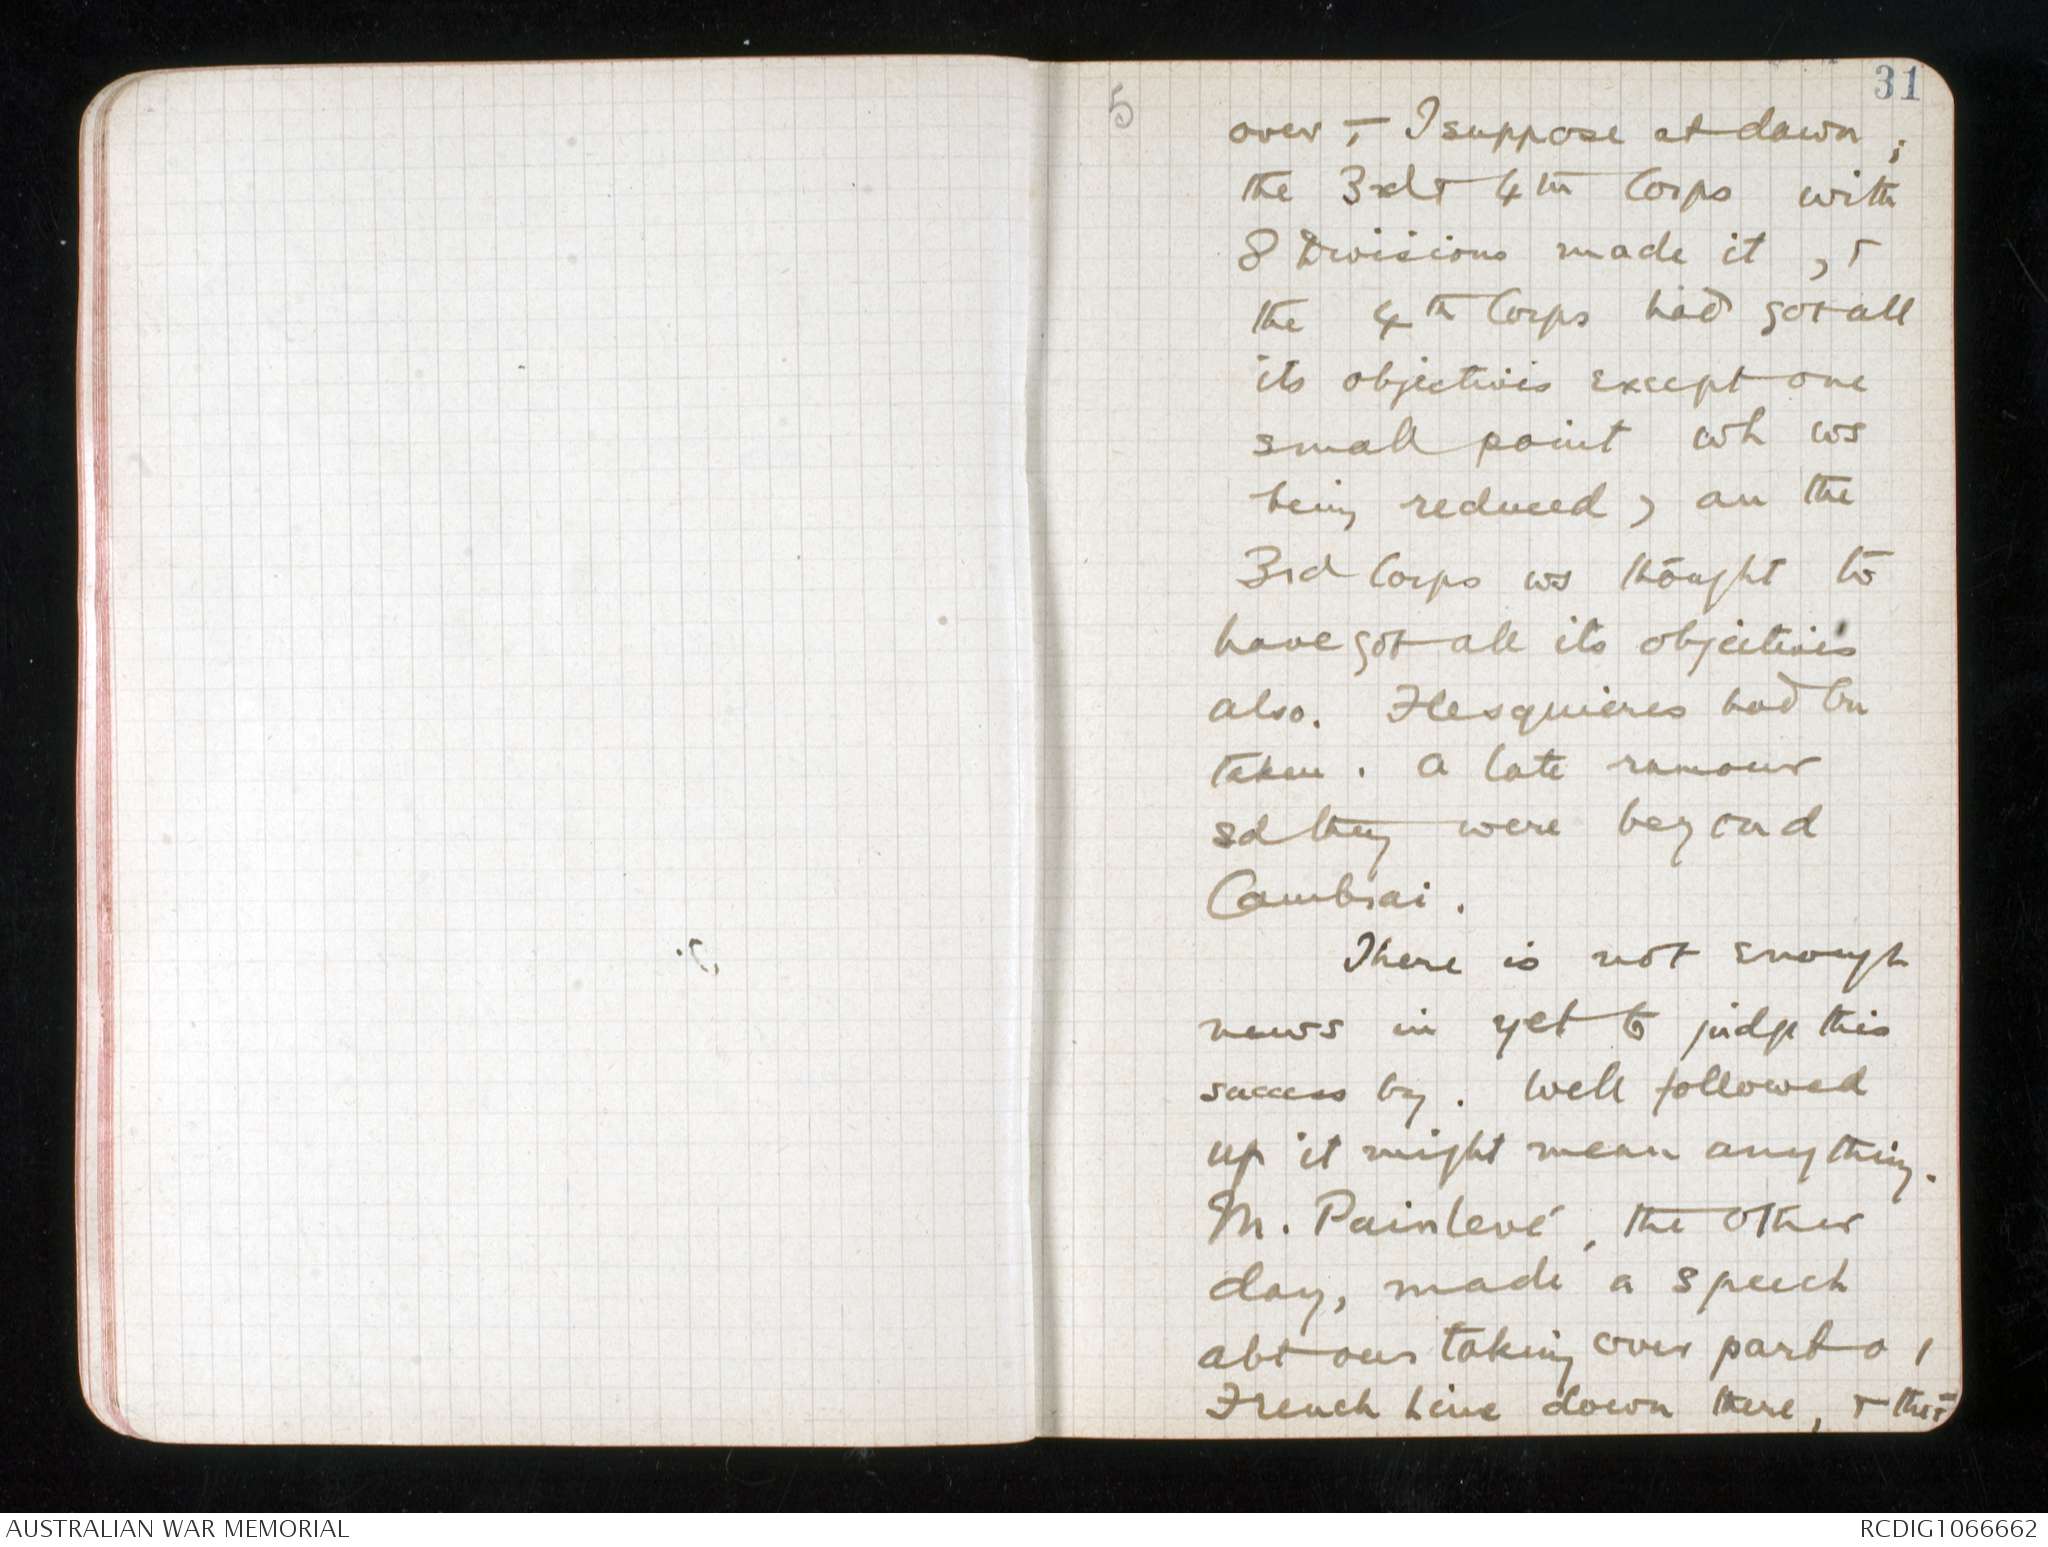 31
5
over, - I suppose at dawn;
the 3rd & 4th Corps with
8 Divisions made it, &
the 4th Corps had got all
its objectives except one
small point wh ws
being reduced, an the
3rd Corps ws thought to
have got all its objectives
also. Flesquieres had bn
taken. A late rumour
sd they were beyond
Cambrai.
There is not enough
news in yet to judge this
success by. Well followed
up it might mean anything.
M. Painlevé, the other
day, made a speech
abt our taking over part o/
French line down there, & tht
AUSTRALIAN WAR MEMORIAL
RCDIG1066662